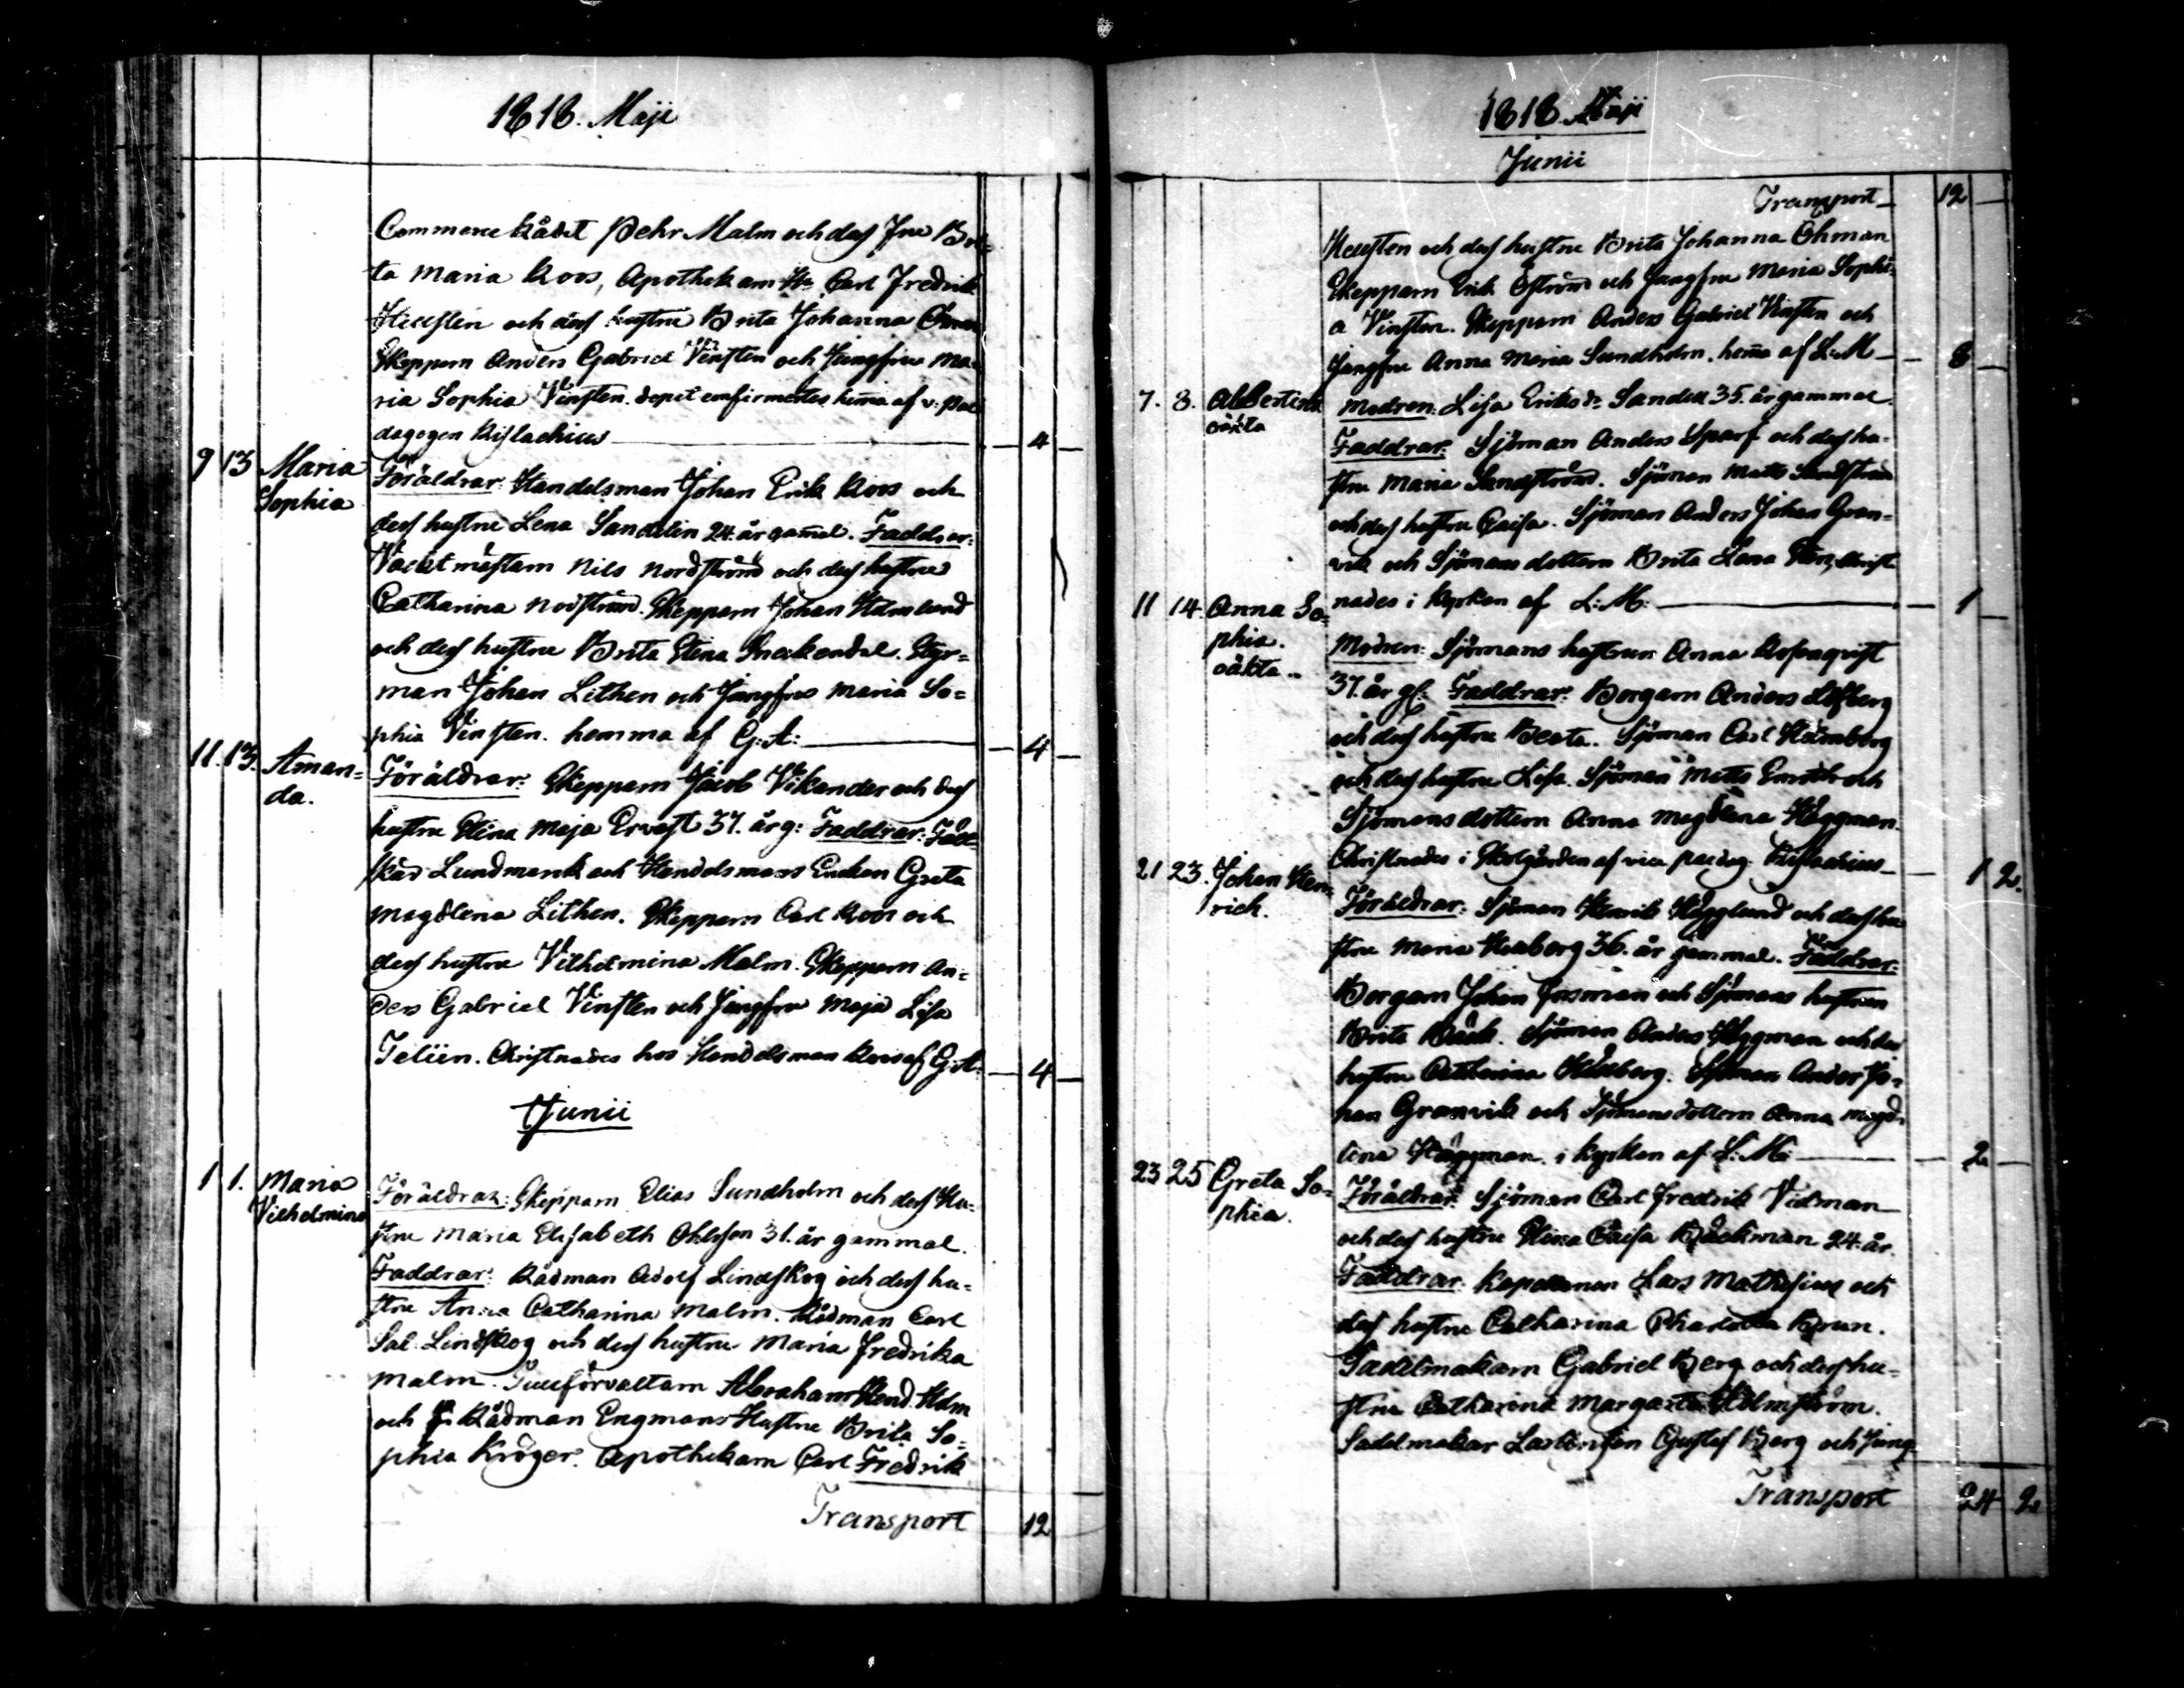 1818. Maji
Commerce Rådet Pehr Malm och dess Fru Bri-
ta Maria Roos, Apothekarn Hr Carl Fredrik
och dess hustru Brita Johanna Öhman
Skepparn Anders Gabriel Vinsten och Jungfru Ma-
ria Sophia Vinsten. dopet confirmertes hema af v: Pae
dagogen
4
9 13 Maria
Sophia
Föräldrar: Handelsman Johan Erik Roos och
dess hustru Lena Sandelin 24. år gamel. Faddrar:
Vacktmästarn Nils Nordström och dess hustru
Catharina Nordström. Skepparn Johan Holmlund
och dess hustru Brita Stina Snickendal. Styr-
man Johan Lithen och Jungfru Maria So=
phia Vinsten. hemma af G: A:
4
11. 13. Aman=
da.
Föräldrar: Skepparn Jacob Vikander och dess
hustru Stina Maja Ervast 37. år g: Faddrar: Fält
skär Lundmark och Handelsmans Enckan Greta
Magdlena Lithen. Skepparn Carl Roos och
dess hustru Vilhelmina Malm. Skepparn An=
ders Gabriel Vinsten och Jungfru Maja Lisa
Telin. Christnades hos Handelsman Roos af G: A:
4
Junii
1 1. Maria
Vilhelmina
Föräldrar: Skepparn Elias Sundholm och dess Hu-
stru Maria Elisabeth Ohlsson 31. år gammal.
Faddrar: Rådman Adolf Lindskog och dess hu=
stru Anna Catharina Malm. Rådman Carl
Sal. Lindskog och dess hustru Maria Fredrika
Malm. Tullförvaltarn Abraham Hend. Holm
och Rådman Engmans Hustru Brita So=
phia Kröger. Apothekarn Carl Fredrik
Transport 12
1818. Maji
Junii
Transport 12
och dess hustru Brita Johanna Öhman
Skepparn Erik Öström och Jungfru Maria Sophi=
a Vinsten. Skepparn Anders Gabriel Vinsten och
Jungfru Anna Maria Sundholm. hema af L: M
8
7. 8. Albertina
oäkta
Modren: Lisa Eriksdr Sandell 35. år gammal.
Faddrar: Sjöman Anders Sparf och dess hu-
stru Maria Sandström. Sjöman Matts Sandström
och dess hustru Caisa. Sjöman Anders Johan Gran-
vik och Sjömans dottern Brita Lena christ
nades i Kyrkan af L: M:
1
11 14. Anna So=
phia.
oäkta
Modren: Sjömans hustrun Anna Rosnqvist
37. år gl: Faddrar: Borgarn Anders Löfberg
och dess hustru Beata. Sjöman Carl Holmberg
och dess hustru Lisa. Sjöman Matts och
Sjömans dottern Anna Magdlena Häggman.
Christnades i Skolgården af vice paedag.
1 2.
21 23. Johan Hen=
rich.
Föräldrar: Sjöman Henrik Hägglund och dess hu
stru Maria 36. år gammal. Faddrar:
Borgarn Johan Josman och Sjömans hustrun
Brita Bäck. Sjöman Anders Häggman och dess
hustru Catharina. Sjöman Anders Jo-
han Granvik och Sjömans dottern Anna Magd-
lena Häggman. i Kyrkan af L: M:
2
23 25 Greta So=
phia.
Föräldrar: Sjöman Carl Fredrik Vidman
och dess hustru Stina Caisa Bäckman 24. år
Faddrar: Kapellanen Lars Mathesius och
dess hustru Catharina Charlotta Brun.
Sadelmakarn Gabriel Berg och dess hu-
stru Catharina Margareta Holmström.
Sadelmakar Gustaf Berg och Jung-
Transport 24 2